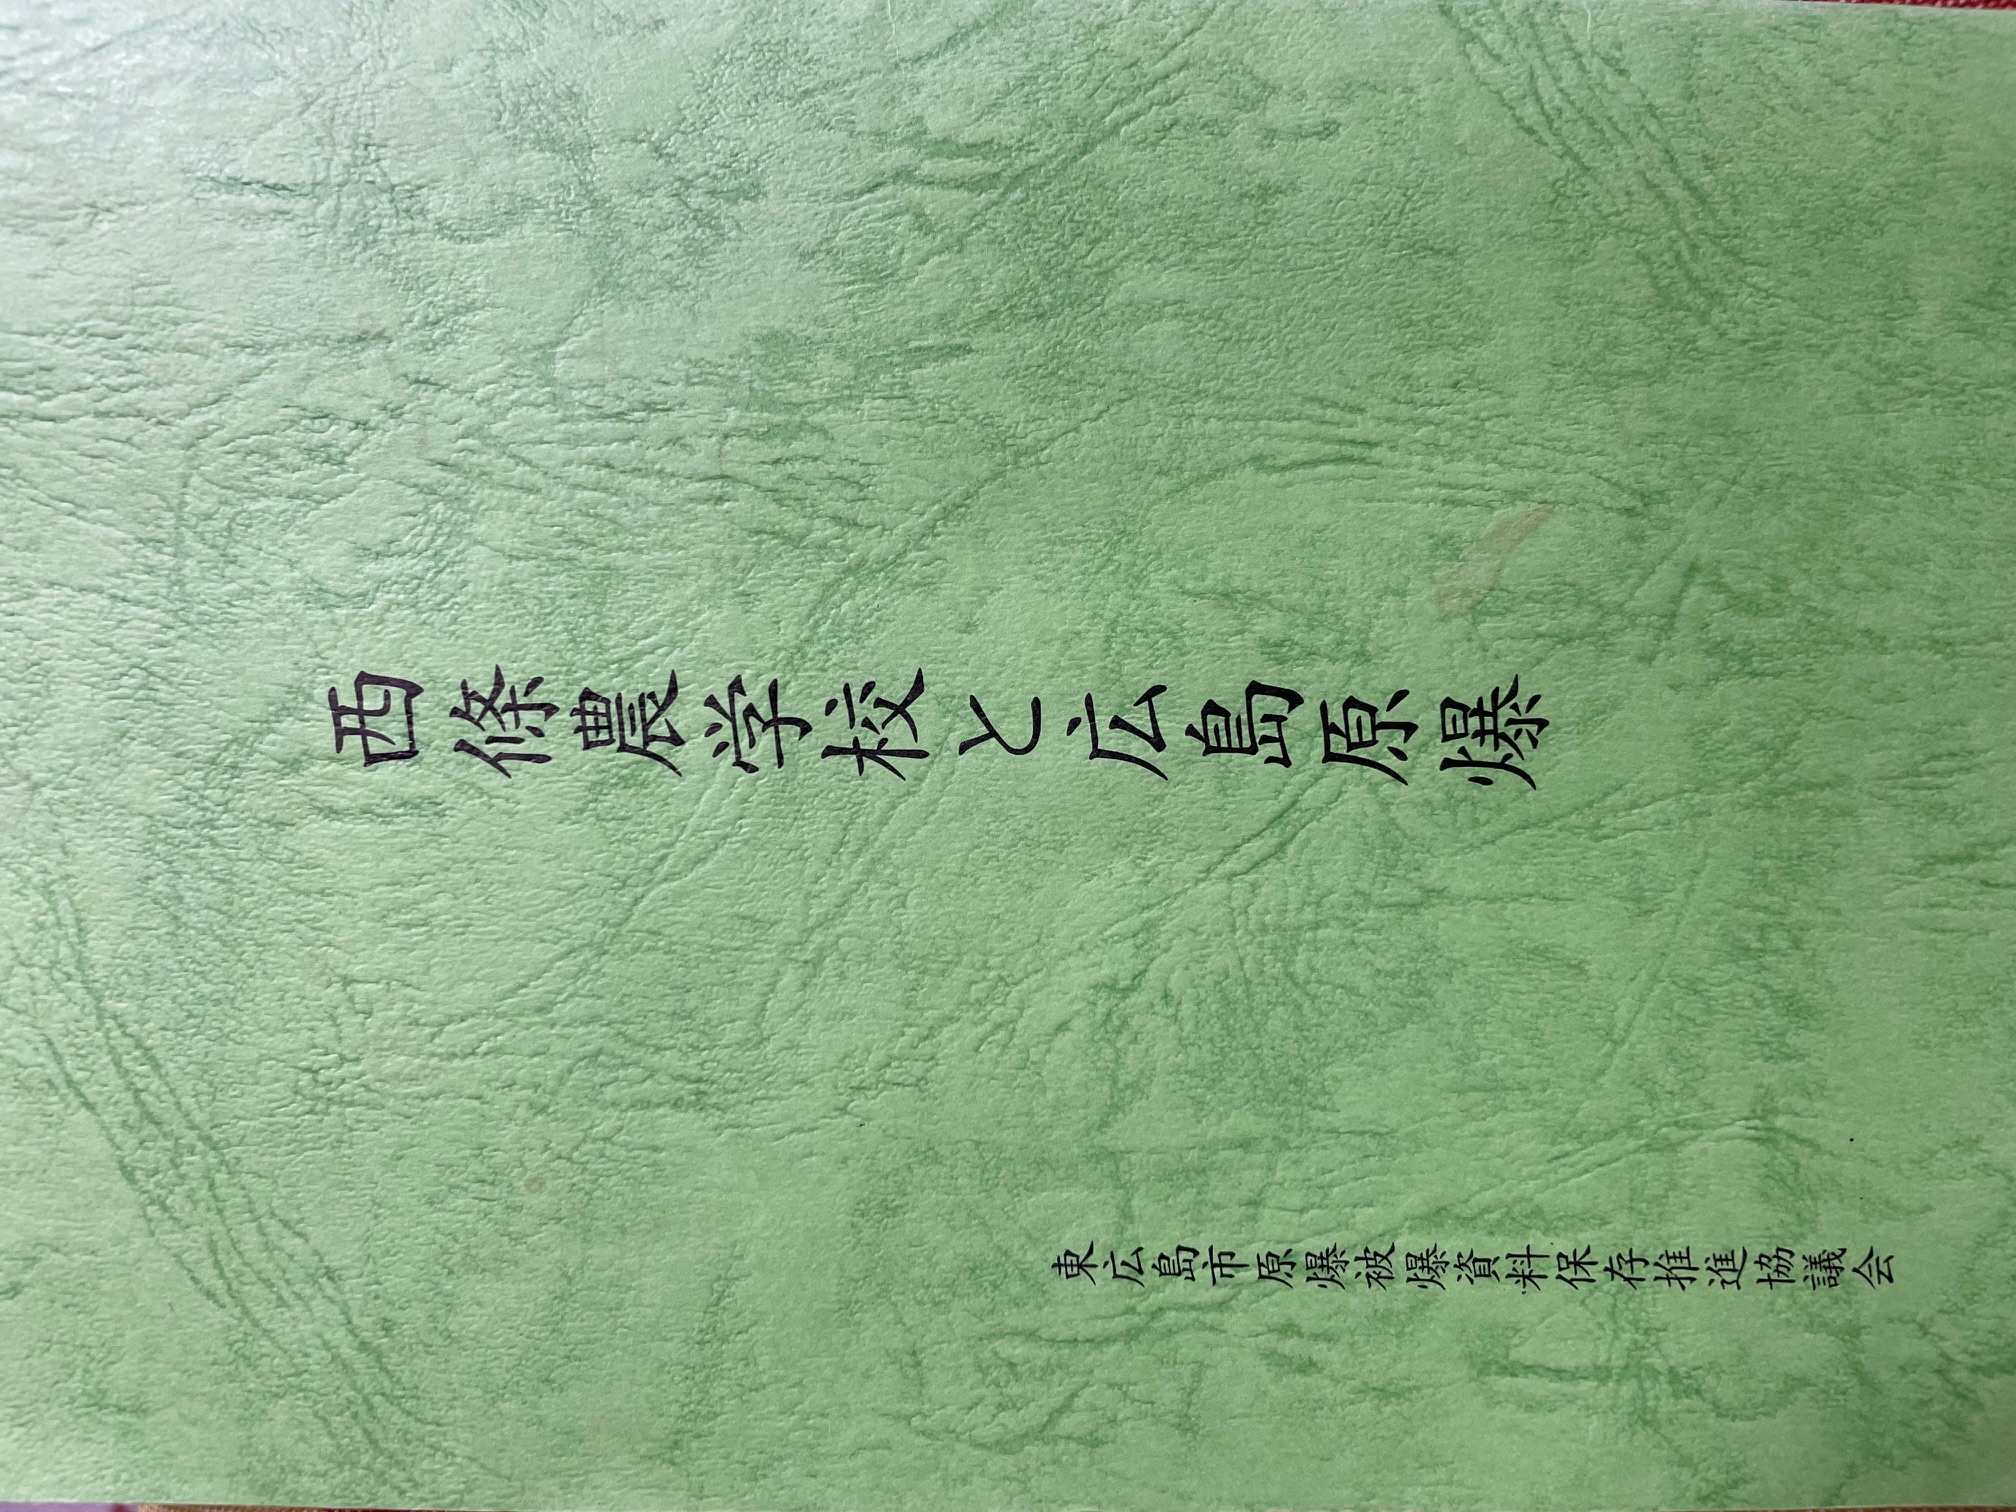 西條農学校と広島原爆
東広島市原爆被爆資料保存推進協議会